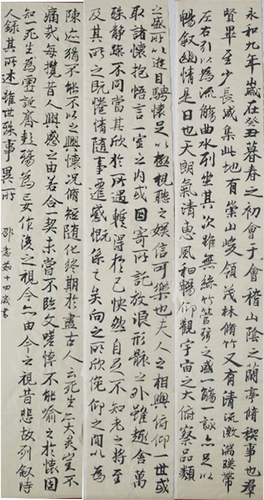 永和九年歲在癸丑暮春之初會于會稽山陰之蘭亭脩稧事也羣
賢畢至少長咸集此地有崇山峻領茂林脩竹又有清流激湍暎帶
左右引以為流觴曲水列坐其次雖無絲竹管弦之盛一觴一詠亦足以
暢叙幽情是日也天朗氣清惠風和暢仰觀宇宙之大俯察品類
之盛所以遊目騁懷足以極視聽之娛信可樂也夫人之相與俯仰一世或
取諸懷抱悟言一室之內或因寄所託放浪形骸之外雖趣舍萬
殊靜躁不同當其欣於所遇暫得於己快然自足不知老之將至
及其所之既惓情隨事遷感慨係之矣向之所欣俛仰之間以為
陳迹猶不能不以之興懷況脩短隨化終期於盡古人云死生亦大矣豈不
痛哉每攬昔人興感之由若合一契未嘗不臨文嗟悼不能喻之於懷固
知死生為虛誕齊彭殤為妄作後之視今亦由今之視昔悲故列叙時
人錄其所述雖世殊事異所